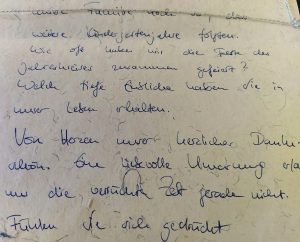 unsere Familie noch so das
weitere Kindergartenjahre folgten.
Wie oft haben wir die Feste des
Jahreskreises zusammen gefeiert?
Welch tiefe Einblicke haben Sie in
unser Leben erhalten.
Von Herzen unser herzlicher Danke-
schön. Eine liebevolle Umarmung
uns die verrückte Zeit gerade nicht.
Fühlen Sie sich gedrückt